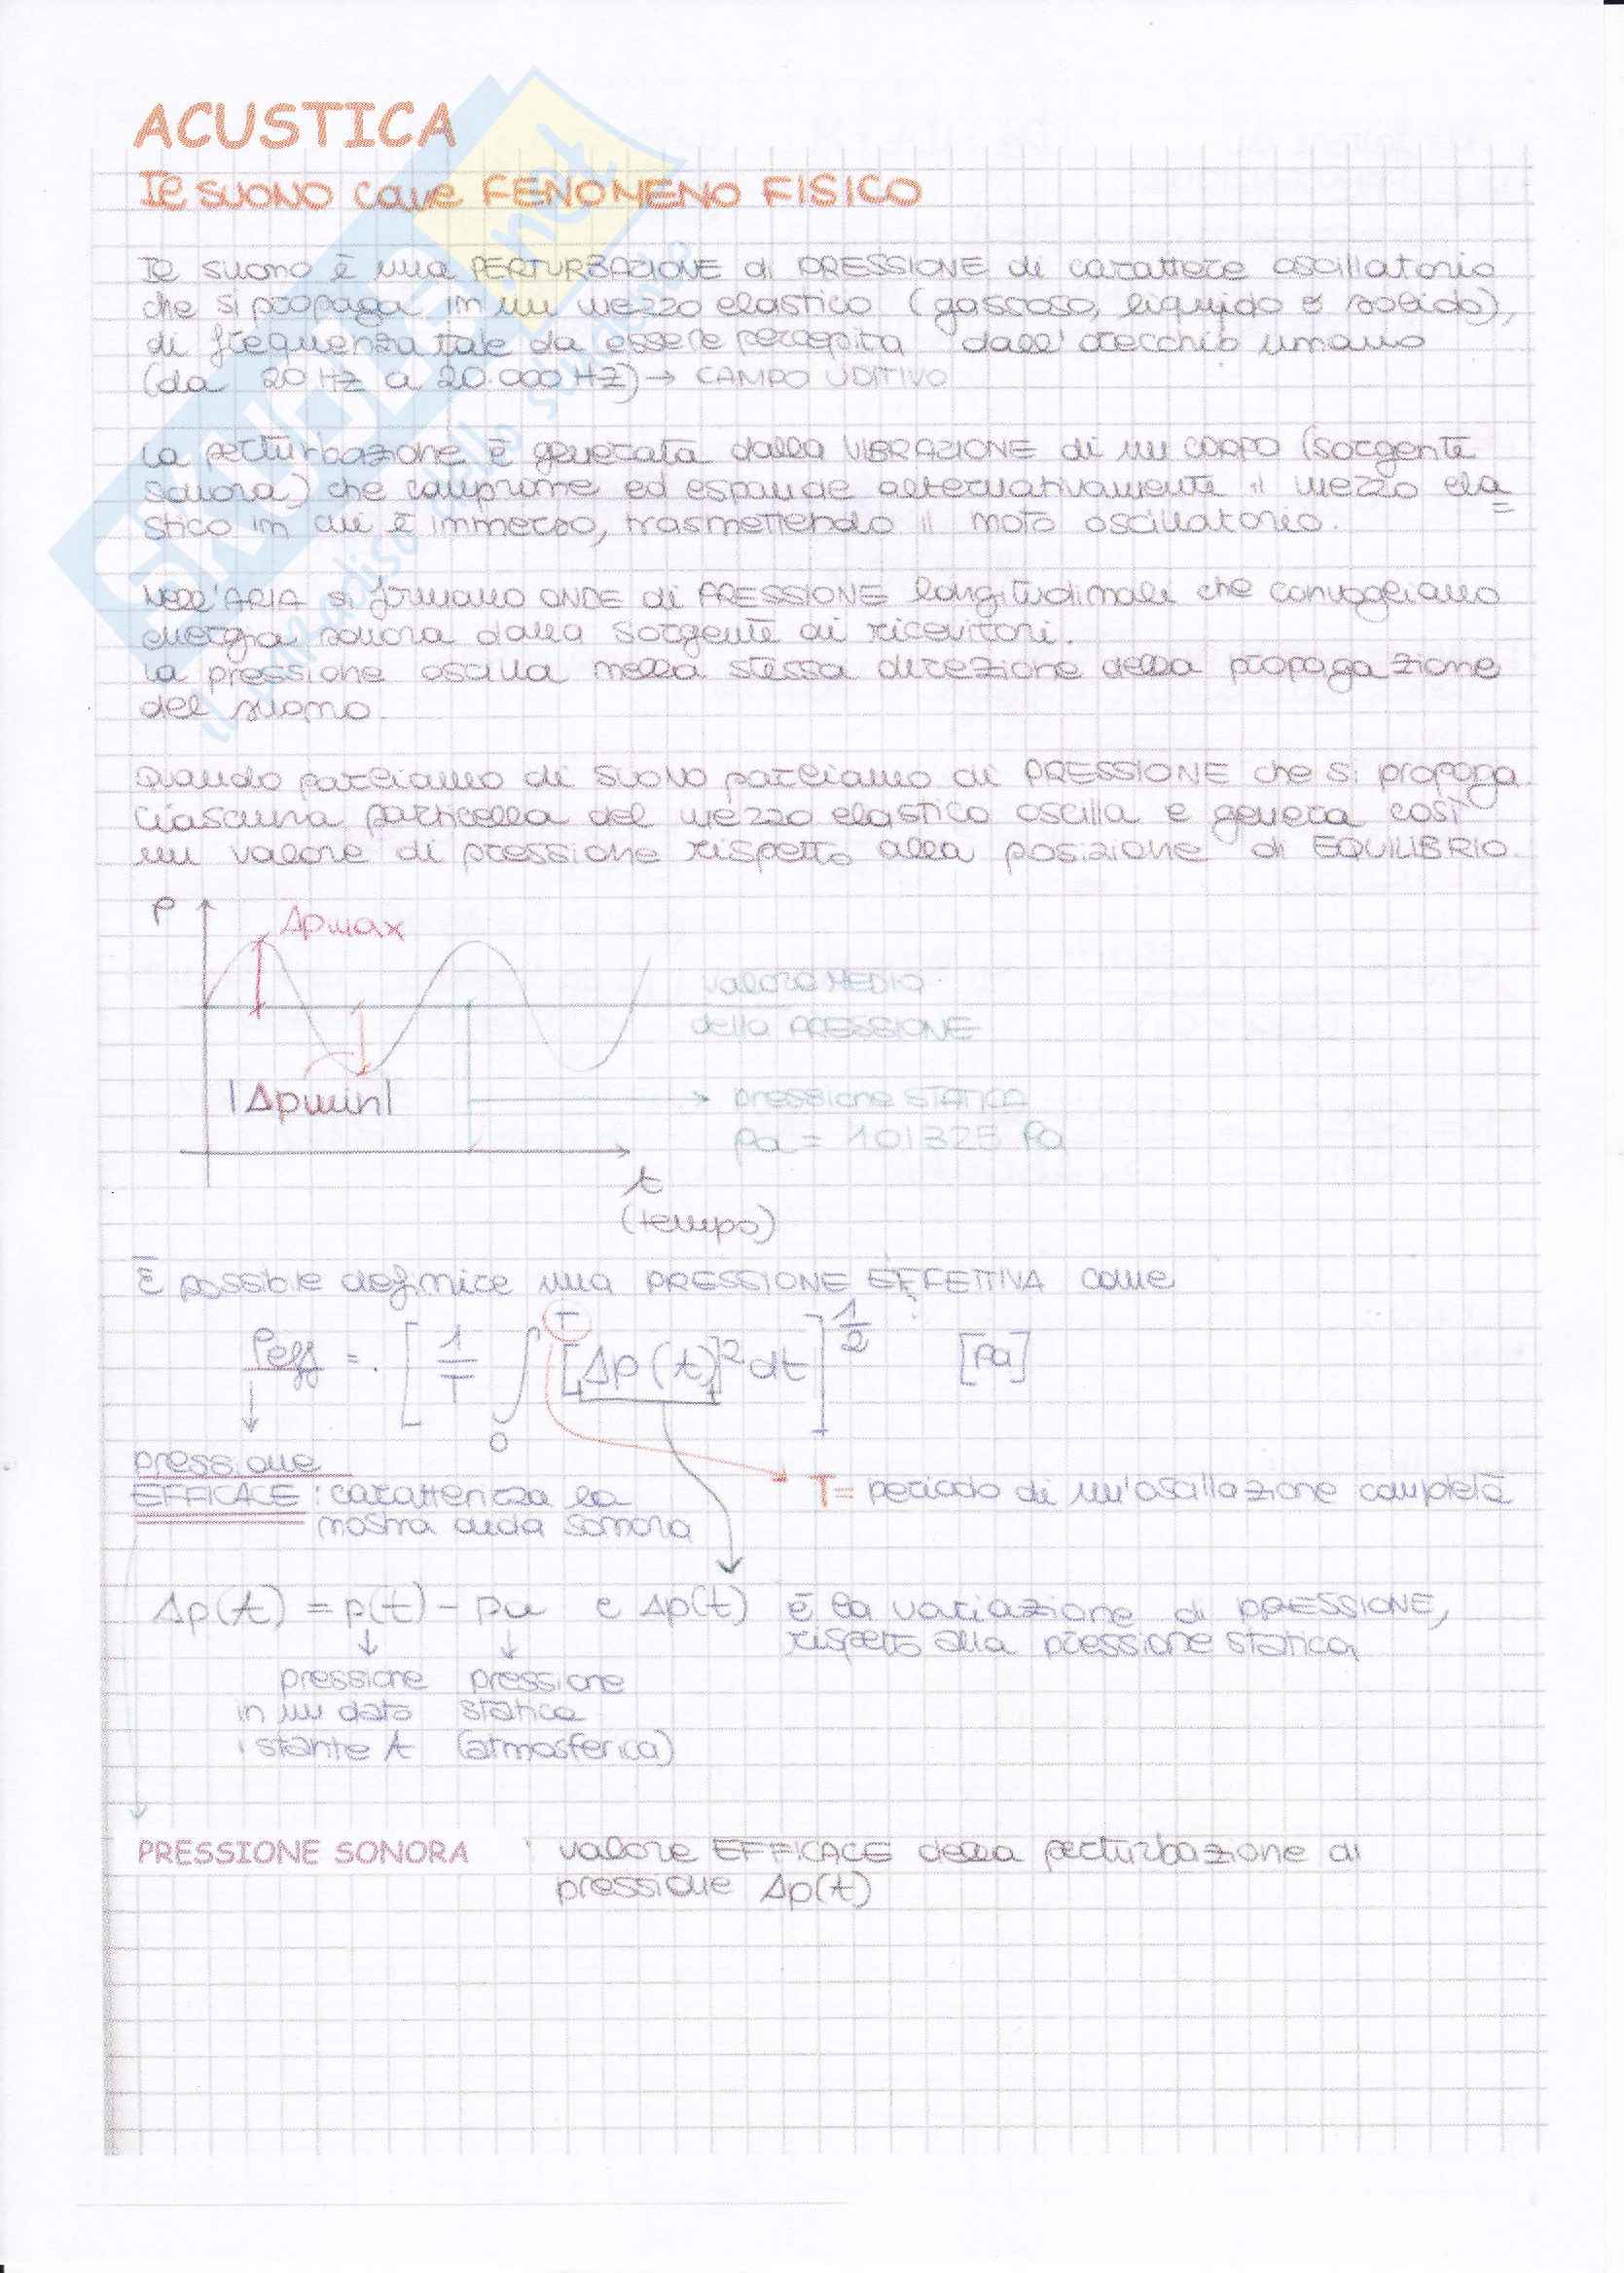 ACUSTICA
Il SUONO come FENOMENO FISICO
Il suono è una PERTURBAZIONE di PRESSIONE di carattere oscillatorio
che si propaga in un mezzo elastico (gassoso, liquido o solido),
di frequenza tale da essere percepita dall'orecchio umano
(da 20 Hz a 20.000 Hz) → CAMPO UDITIVO
La perturbazione è generata dalla VIBRAZIONE di un CORPO (sorgente
sonora) che comprime ed espande alternativamente il mezzo ela
stico in cui è immerso, trasmettendo il moto oscillatorio.
Nell'ARIA si formano ONDE di PRESSIONE longitudinali che convogliano
energia sonora dalla sorgente ai ricevitori.
La pressione oscilla nella stessa direzione della propagazione
del suono.
Quando parliamo di SUONO parliamo di PRESSIONE che si propaga.
Ciascuna particella del mezzo elastico oscilla e genera così
un valore di pressione rispetto alla posizione di EQUILIBRIO.
P
Δpmax
valore MEDIO
della PRESSIONE
|Δpmin|
pressione STATICA
pa = 101325 Pa
t
(tempo)
È possibile definire una PRESSIONE EFFETTIVA come:
Peff = [ 1/T ∫₀ᵀ [Δp(t)]² dt ]^1/2 [Pa]
pressione
EFFICACE: caratterizza la
nostra onda sonora
T = periodo di un'oscillazione completa
Δp(t) = p(t) - pa e Δp(t) è la variazione di PRESSIONE,
rispetto alla pressione statica,
pressione pressione
in un dato statica
istante t (atmosferica)
PRESSIONE SONORA : valore EFFICACE della perturbazione di
pressione Δp(t)
SKUOLA.net
il paradiso dello studente